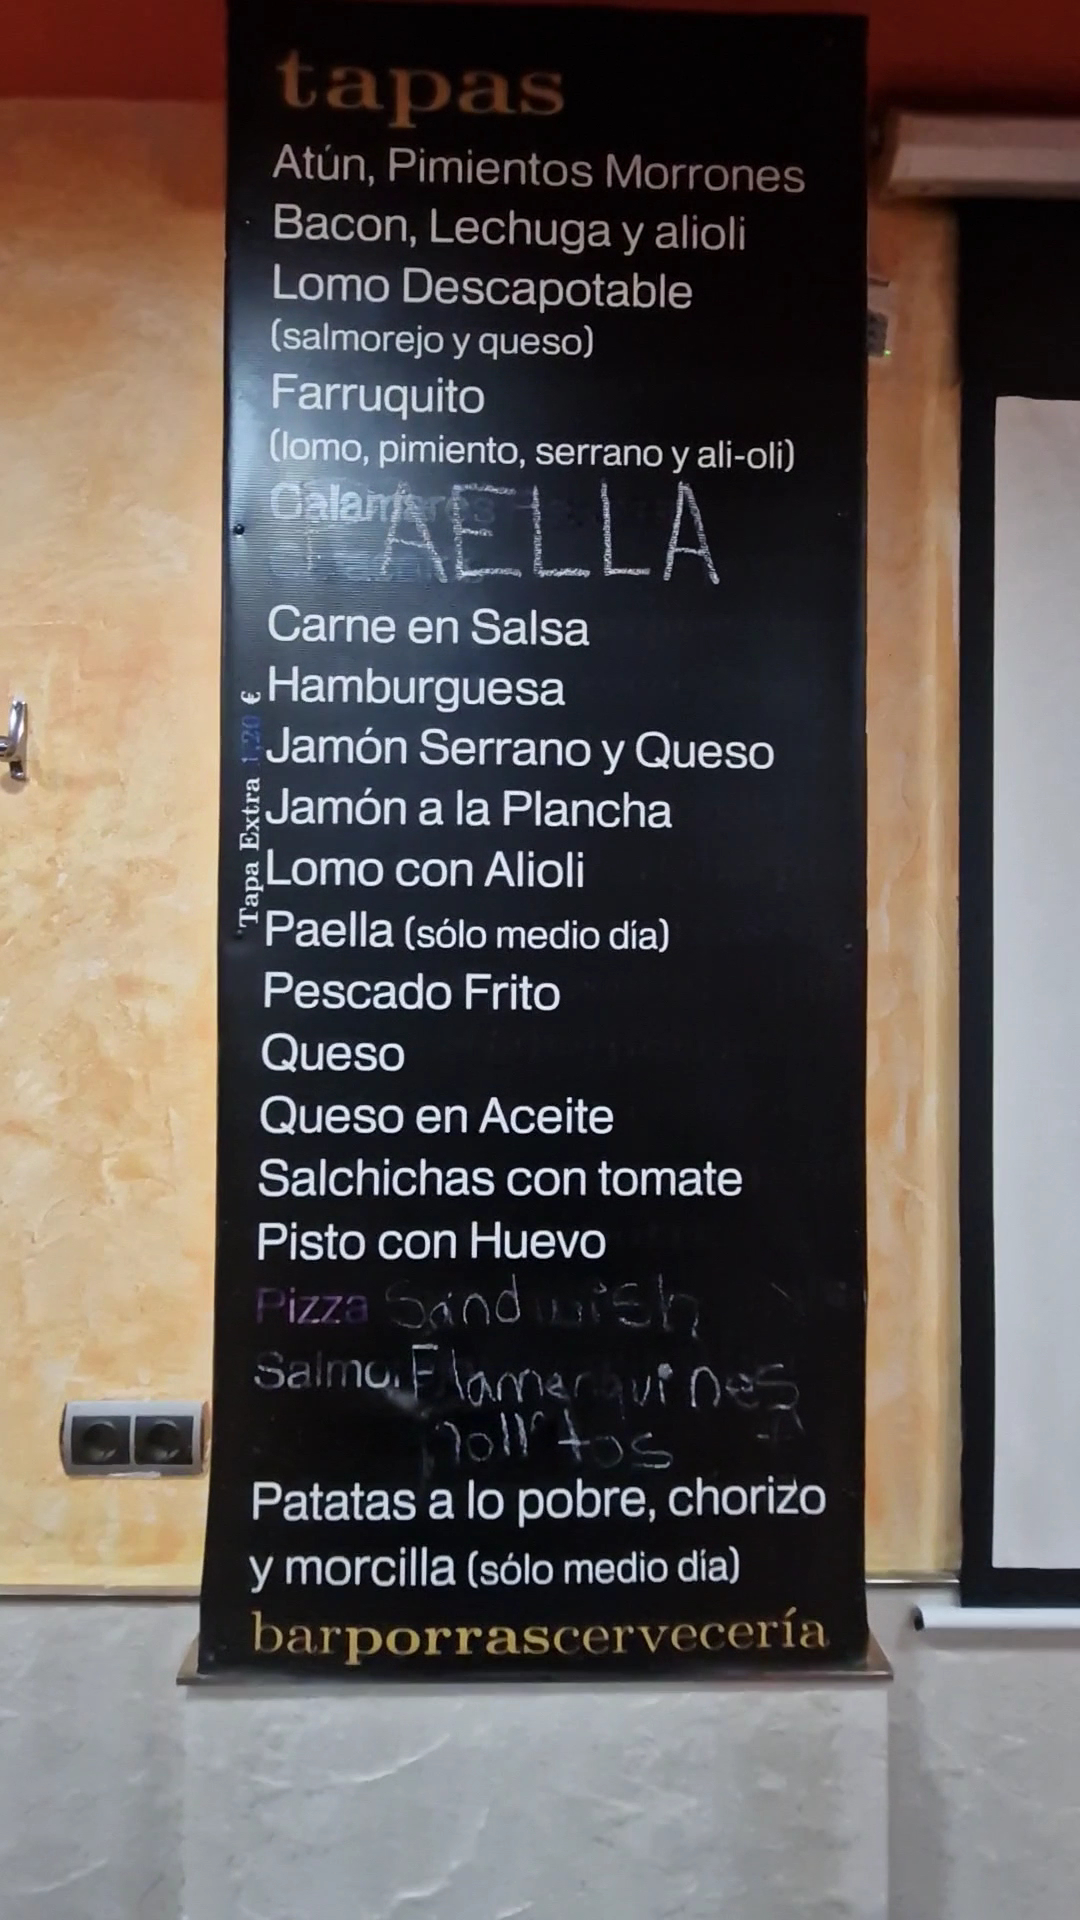 tapas
Atún, Pimientos Morrones
Bacon, Lechuga y alioli
Lomo Descapotable
(salmorejo y queso)
Farruquito
(lomo, pimiento, serrano y ali-oli)
Calamares
PAELLA
Carne en Salsa
Hamburguesa
Jamón Serrano y Queso
Jamón a la Plancha
Lomo con Alioli
Paella (sólo medio día)
Pescado Frito
Queso
Queso en Aceite
Salchichas con tomate
Pisto con Huevo
Pizza Sandwish
Flamenquines
Pollitos
Patatas a lo pobre, chorizo
y morcilla (sólo medio día)
barporrascervecería
Tapa Extra 1,20 €